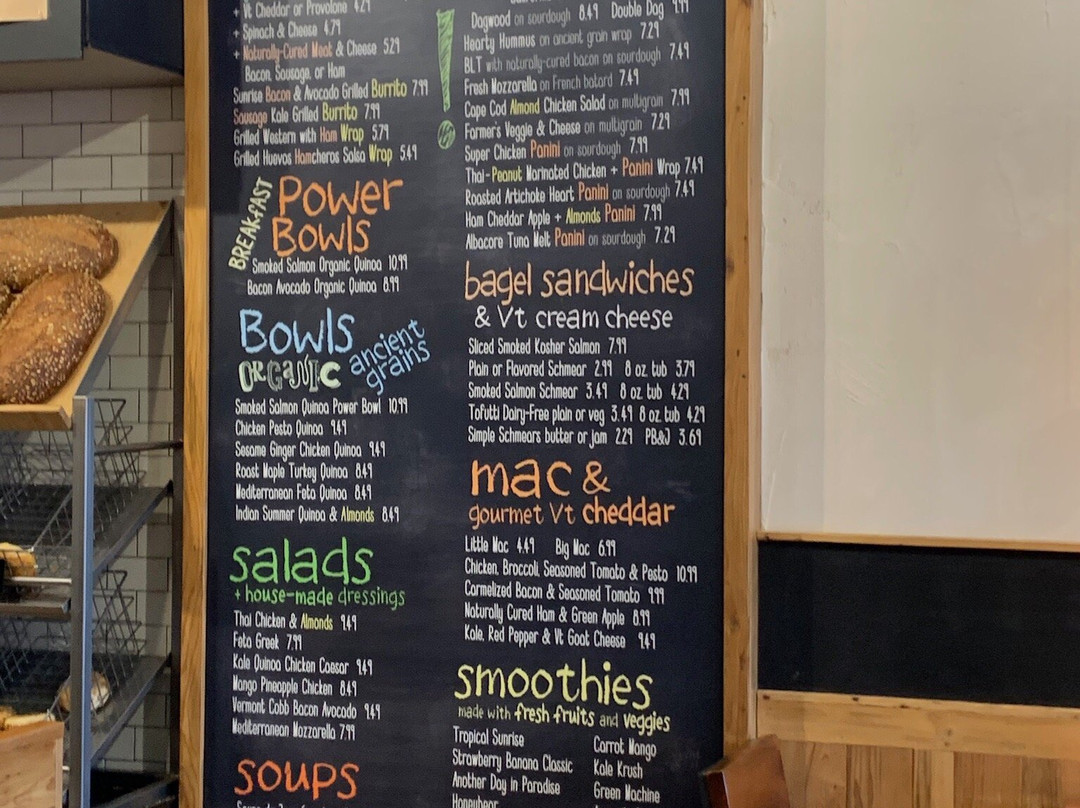 + Vt Cheddar or Provolone 4.29
+ Spinach & Cheese 4.79
+ Naturally-Cured Meat & Cheese 5.29
Bacon, Sausage, or Ham
Sunrise Bacon & Avocado Grilled Burrito 7.99
Sausage Kale Grilled Burrito 7.99
Grilled Western with Ham Wrap 5.79
Grilled Huevos Hamcheros Salsa Wrap 5.49
BREAKFAST
POWER
BOWLS
Smoked Salmon Organic Quinoa 10.99
Bacon Avocado Organic Quinoa 8.99
BOWLS
ORGANIC ancient
grains
Smoked Salmon Quinoa Power Bowl 10.99
Chicken Pesto Quinoa 9.49
Sesame Ginger Chicken Quinoa 9.49
Roast Maple Turkey Quinoa 8.49
Mediterranean Feta Quinoa 8.49
Indian Summer Quinoa & Almonds 8.49
salads
+ house-made dressings
Thai Chicken & Almonds 9.49
Feta Greek 7.99
Kale Quinoa Chicken Caesar 9.49
Mango Pineapple Chicken 8.49
Vermont Cobb Bacon Avocado 9.49
Mediterranean Mozzarella 7.99
soups
Dagwood on sourdough 8.49 Double Dag 9.99
Hearty Hummus on ancient grain wrap 7.29
BLT with naturally-cured bacon on sourdough 7.49
Fresh Mozzarella on French batard 7.49
Cape Cod Almond Chicken Salad on multigrain 7.99
Farmer's Veggie & Cheese on multigrain 7.29
Super Chicken Panini on sourdough 7.99
Thai-Peanut Marinated Chicken + Panini Wrap 7.49
Roasted Artichoke Heart Panini on sourdough 7.49
Ham Cheddar Apple + Almonds Panini 7.99
Albacore Tuna Melt Panini on sourdough 7.29
bagel sandwiches
& Vt cream cheese
Sliced Smoked Kosher Salmon 7.99
Plain or Flavored Schmear 2.99 8 oz tub 3.79
Smoked Salmon Schmear 3.49 8 oz tub 4.29
Tofutti Dairy-Free plain or veg 3.49 8 oz tub 4.29
Simple Schmears butter or jam 2.29 PB&J 3.69
mac &
gourmet Vt cheddar
Little Mac 4.49 Big Mac 6.99
Chicken, Broccoli, Seasoned Tomato & Pesto 10.99
Carmelized Bacon & Seasoned Tomato 9.99
Naturally Cured Ham & Green Apple 8.99
Kale, Red Pepper & Vt Goat Cheese 9.49
smoothies
made with fresh fruits and veggies
Tropical Sunrise Carrot Mango
Strawberry Banana Classic Kale Krush
Another Day in Paradise Green Machine
Honeybear